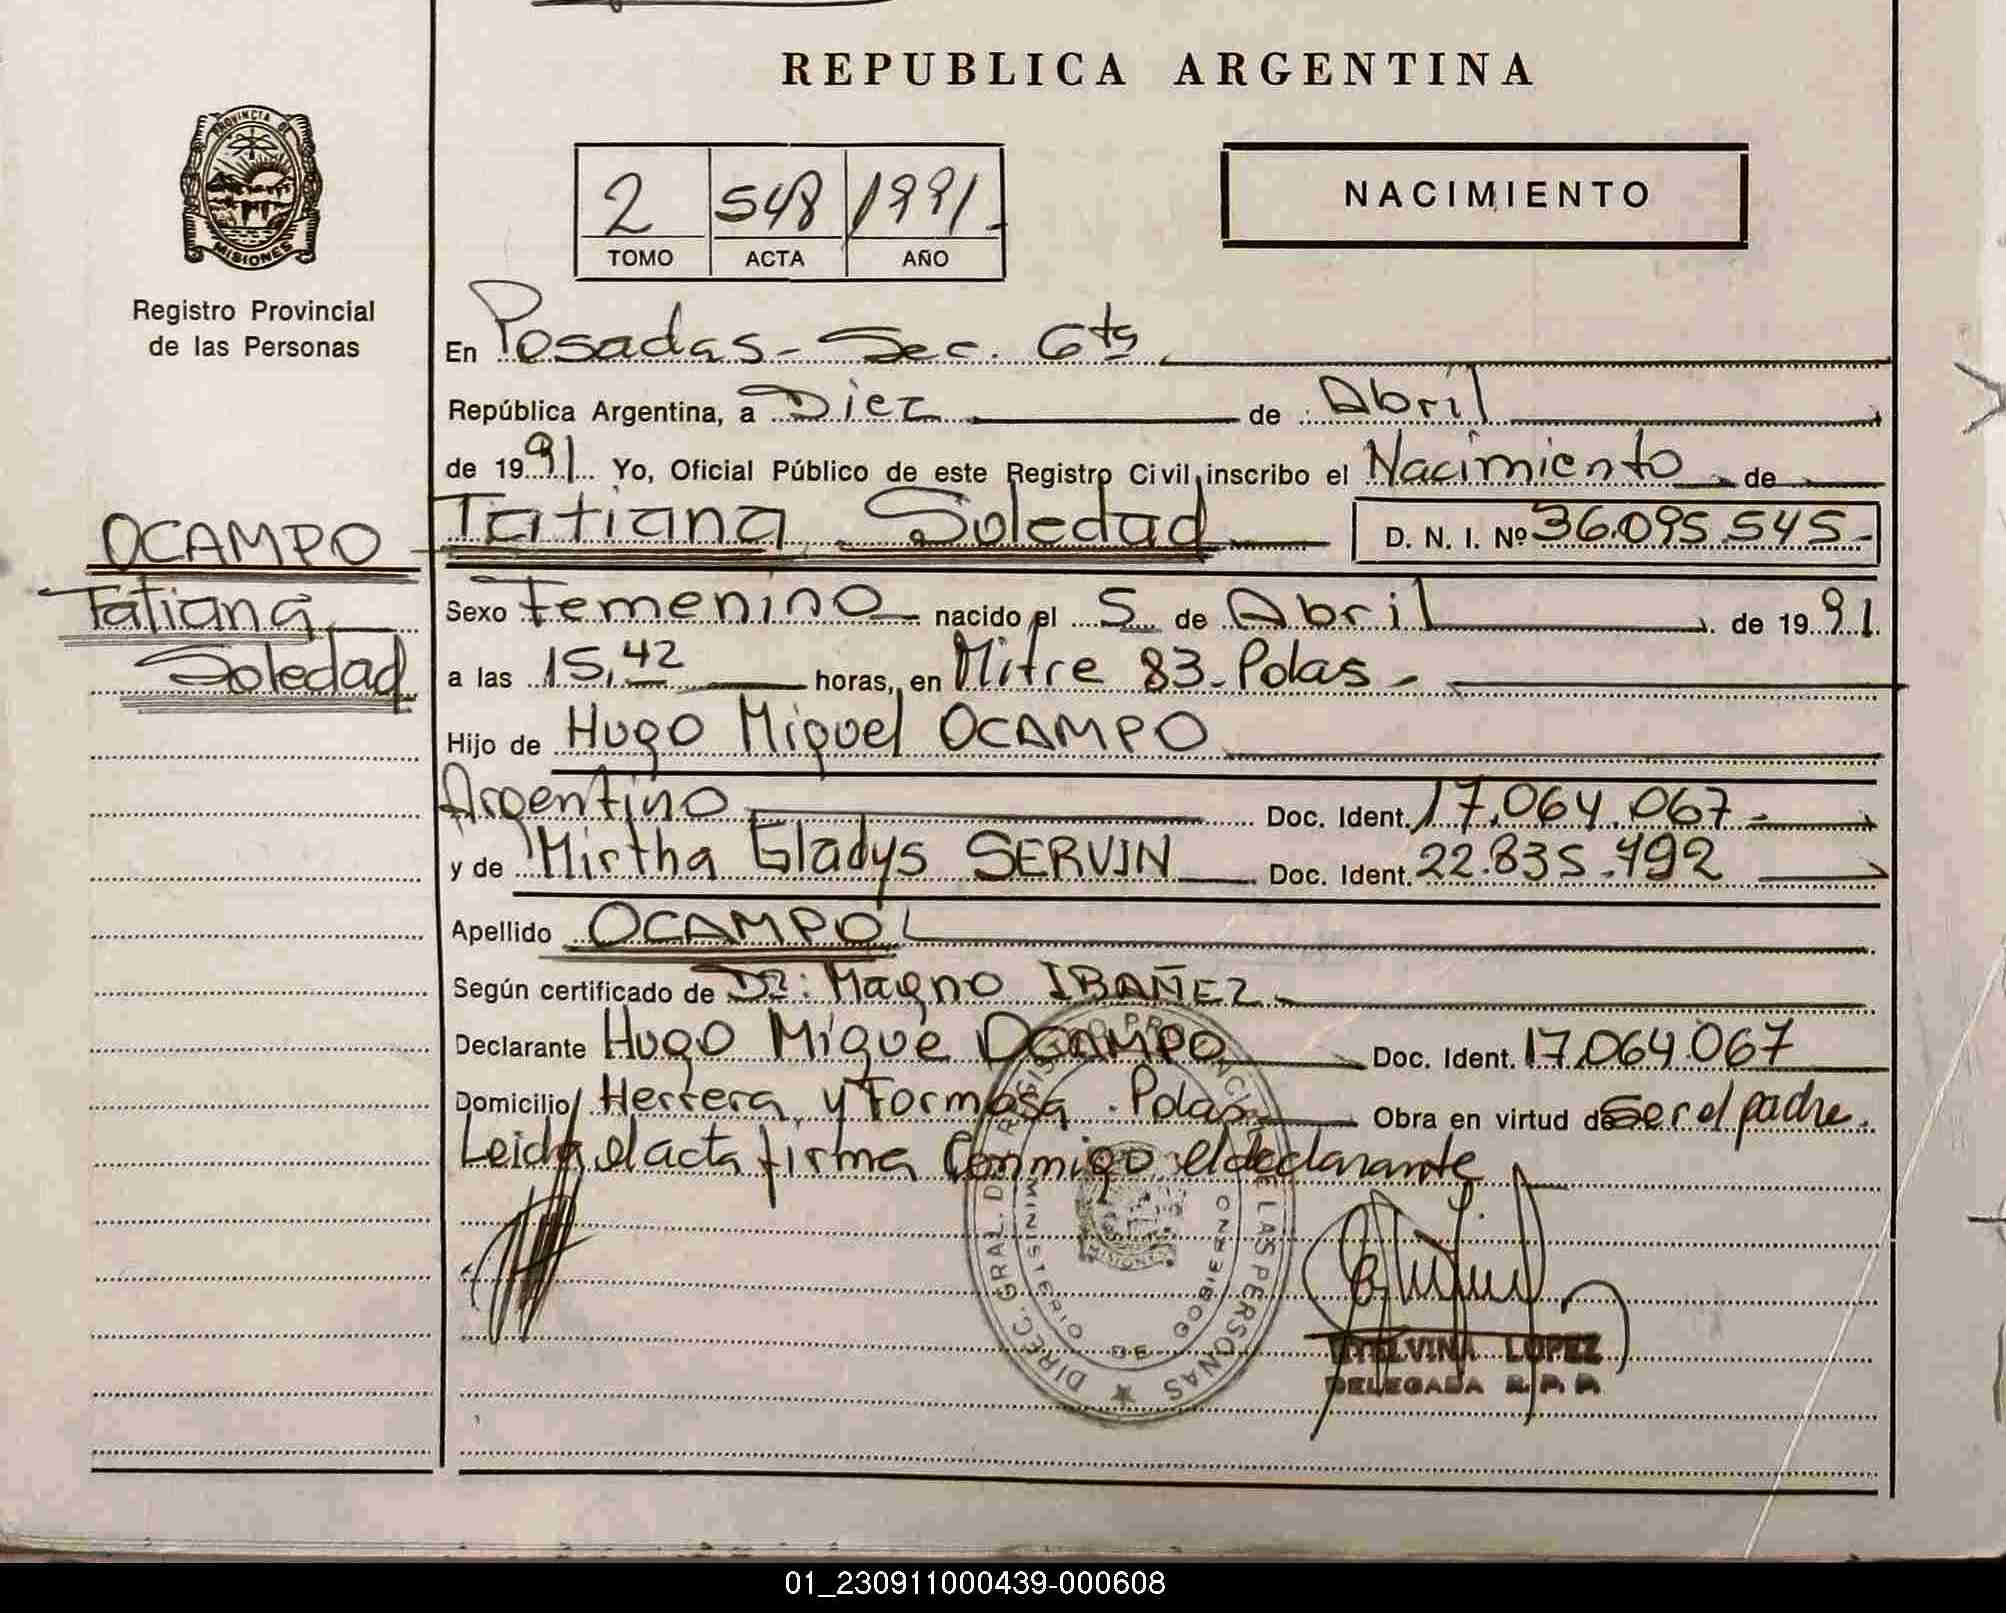 REPUBLICA ARGENTINA
PROVINCIA DE
MISIONES
Registro Provincial
de las Personas
2 548 1991.-
TOMO ACTA AÑO
NACIMIENTO
En Posadas - Sec. 6ta
República Argentina, a Diez de Abril
de 1991 Yo, Oficial Público de este Registro Civil, inscribo el Nacimiento de
OCAMPO
Tatiana
Soledad
Tatiana Soledad D. N. I. Nº 36.095.545.-
Sexo Femenino nacido el 5 de Abril de 1991.
a las 15,42 horas, en Mitre 83 - Pdas -
Hijo de Hugo Miguel OCAMPO
Argentino Doc. Ident. 17.064.067 -
y de Mirtha Gladys SERVIN Doc. Ident. 22.835.492
Apellido OCAMPO
Según certificado de Dr: Magno IBAÑEZ
Declarante Hugo Migue OCAMPO Doc. Ident. 17.064.067
Domicilio Herrera y Formosa . Pdas Obra en virtud de Ser el padre.
Leida el acta firma Conmigo el declarante
DIREC. GRAL. DEL REGISTRO PROVINCIAL DE LAS PERSONAS
MINISTERIO DE GOBIERNO
MISIONES
LOPEZ
DELEGADA R. P. P.
01_230911000439-000608